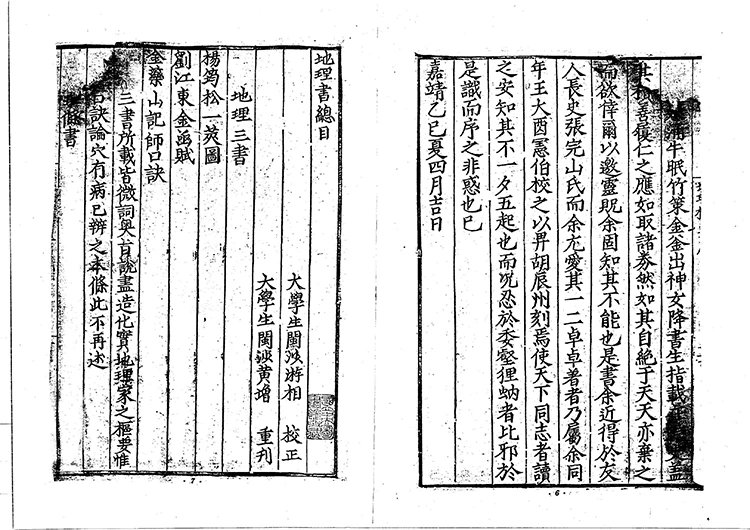 牛眠竹策金釜出神女降書生指載
其私善復仁之應如取諸券然如其自絶于天天亦棄之
而欲倖爾以邀靈貺余固知其不能也是書余近得於友
人長史張完山氏而余尤愛其一二卓卓著者乃屬余同
年王大酉憲伯校之以畀胡辰州刻焉使天下同志者讀
之安知其不一夕五起也而況忍於委壑狸蚋者比邪於
是識而序之非惑也已
嘉靖乙巳夏四月吉日
6
地理書總目
大學生閩汝游相 校正
大學生閩汝黃增 重刊
地理三書
楊筠松一莢圖
劉江東金函賦
金藥山記師口訣
三書所載皆微詞奥旨說盡造化實地理家之樞要惟
口訣論穴有病已辨之本條此不再述
條書
7